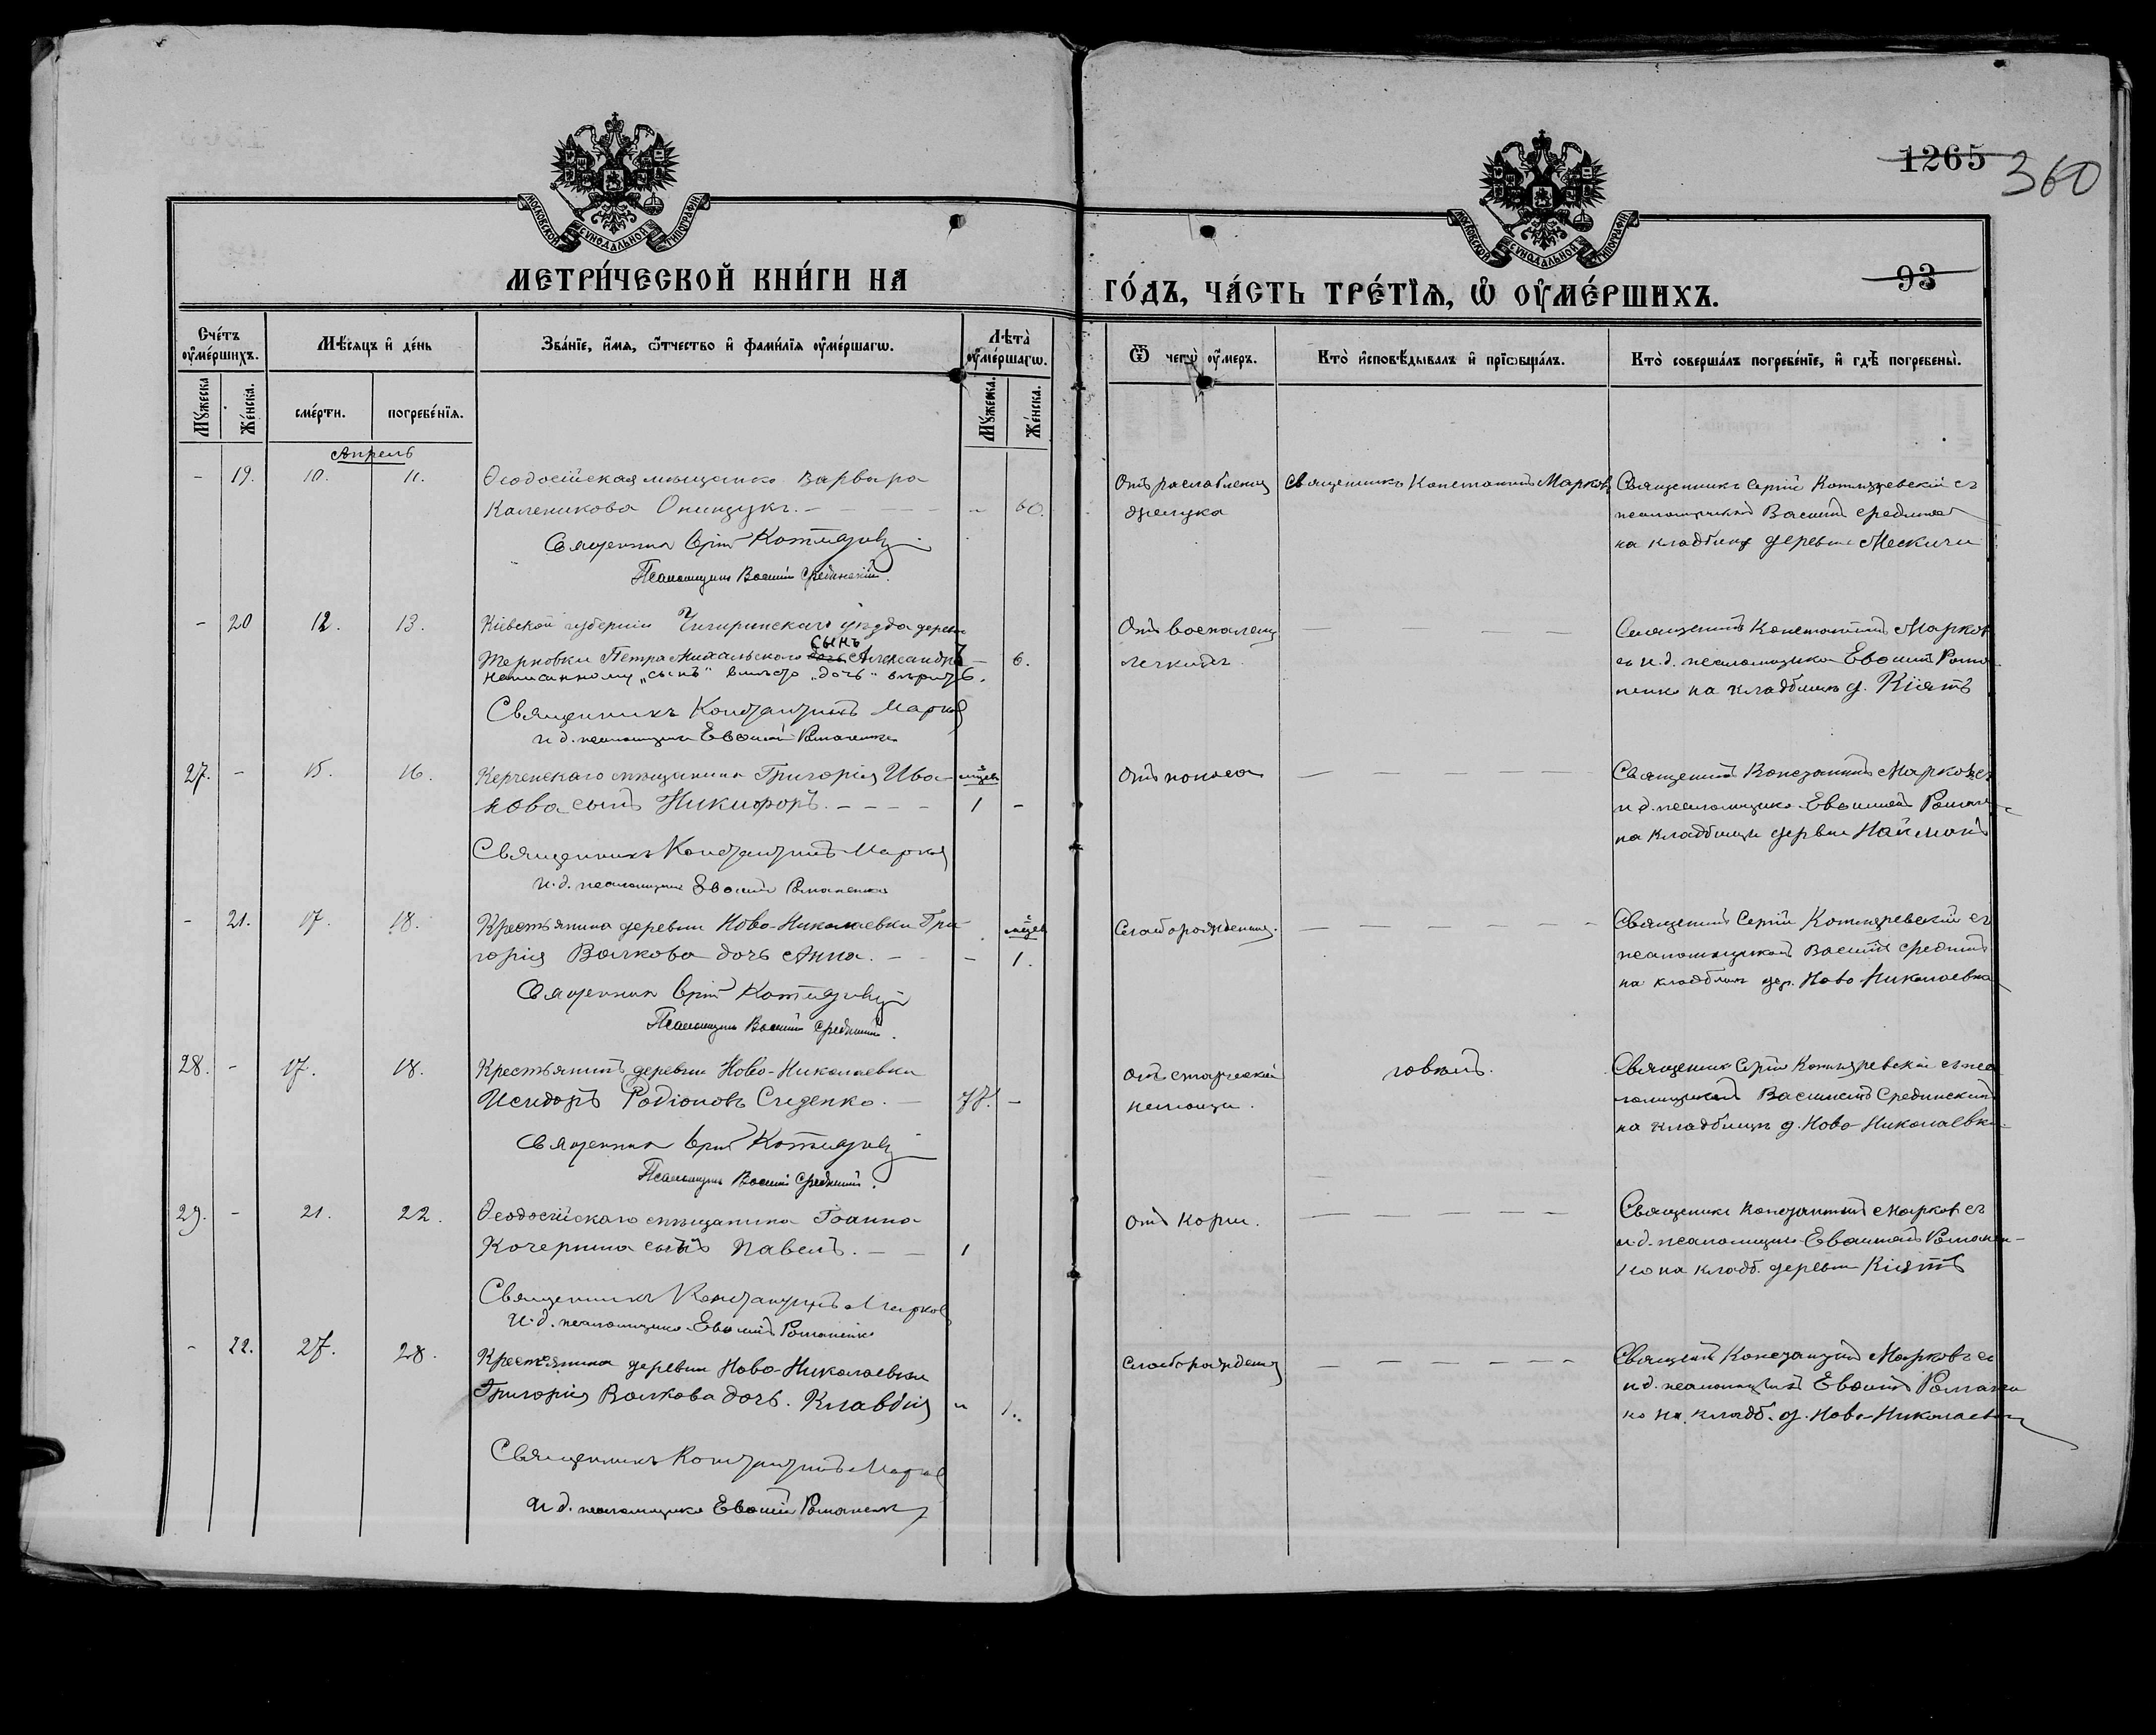 1265 360
МОСКОВСКОЙ СѴНОДАЛЬНОЙ ТИПОГРАФІИ
МОСКОВСКОЙ СѴНОДАЛЬНОЙ ТИПОГРАФІИ
МЕТРИ́ЧЕСКОЙ КНИ́ГИ НА
ГО́ДЪ, ЧА́СТЬ ТРЕ́ТІѦ, Ѡ҆ ОУ҆МЕ́РШИХЪ.
93
Сче́тъ оу҆ме́ршихъ.
Мѣ́сяцъ и҆ де́нь
Зва́нїе, и҆́мя, ѻ҆́тчество и҆ фамі́лїя оу҆ме́ршагѡ.
Лѣ́та оу҆ме́ршагѡ.
Ѿ чегѡ̀ оу҆́меръ.
Кто̀ и҆сповѣ́дывалъ и҆ прїѡбща́лъ.
Кто̀ соверша́лъ погребе́нїе, и҆ гдѣ̀ погребены̀.
Му́жеска Же́нска. сме́рти. погребе́нїя. Му́жеска. Же́нска.
Апрель
- 19. 10. 11. Ѳеодосійская мѣщанка Варвара
Каленикова Онищукъ. - 60.
Священникъ Сергій Котляревскій
Псаломщикъ Василій Срединскій.
Отъ разслабленія
желудка
Священникъ Константинъ Марковъ
Священникъ Сергій Котляревскій съ
псаломщикомъ Василіемъ Срединскимъ
на кладбищѣ деревни Мескичи
- 20 12. 13. Кіевской губерніи Чигиринскаго уѣзда деревни
сынъ
Терновки Петра Михальского дочь Александръ - 6.
Написанному „сынъ" вмѣсто „дочь" вѣрить.
Священникъ Константинъ Марковъ
и д. псаломщика Евѳимій Романенко
Отъ воспаленія
легкихъ.
Священникъ Константинъ Марковъ
съ и.д. псаломщика Евѳиміемъ Рома-
ненко на кладбищѣ д. Кіятъ
27. - 15. 16. Керченскаго мѣщанина Григорія Ива- мѣсяц.
нова сынъ Никифоръ. 1 -
Священникъ Константинъ Марковъ
и.д. псаломщика Евѳимій Романенко
Отъ поноса
Священникъ Константинъ Марковъ съ
и д. псаломщика Евѳиміемъ Романен-
на кладбищѣ деревни Найманъ
- 21. 17. 18. Крестьянина деревни Ново-Николаевки Гри- мѣсяц.
горія Волкова дочь Анна. - 1.
Священникъ Сергій Котляревскій
Псаломщикъ Василій Срединскій.
Слаборожденія.
Священникъ Сергій Котляревскій съ
псаломщикомъ Василіемъ Срединскимъ
на кладбищѣ дер. Ново Николаевка
28. - 17. 18. Крестьянинъ деревни Ново-Николаевки
Исидоръ Родіоновъ Сиденко. 77. -
Священникъ Сергій Котляревскій
Псаломщикъ Василій Срединскій.
Отъ старческой
немощи.
говѣлъ.
Священникъ Сергій Котляревскій съ пса-
ломщикомъ Василіемъ Срединскимъ
на кладбищѣ д. Ново Николаевки.
29. - 21. 22. Ѳеодосійскаго мѣщанина Іоанна
Кочергина сынъ Павелъ. 1
Священникъ Константинъ Марковъ
и.д. псаломщика Евѳимій Романенко
Отъ кори.
Священникъ Константинъ Марковъ съ
и.д. псаломщика Евѳиміемъ Романен-
ко на кладб. деревни Кіятъ
- 22. 27. 28. Крестьянина деревни Ново-Николаевки
Григорія Волкова дочь. Клавдія " 1.
Священникъ Константинъ Марковъ
и д. псаломщика Евѳимій Романенко
Слаборожденія
Священникъ Константинъ Марковъ съ
и д. псаломщика Евѳиміемъ Романен
ко на кладб. д. Ново-Николаевки